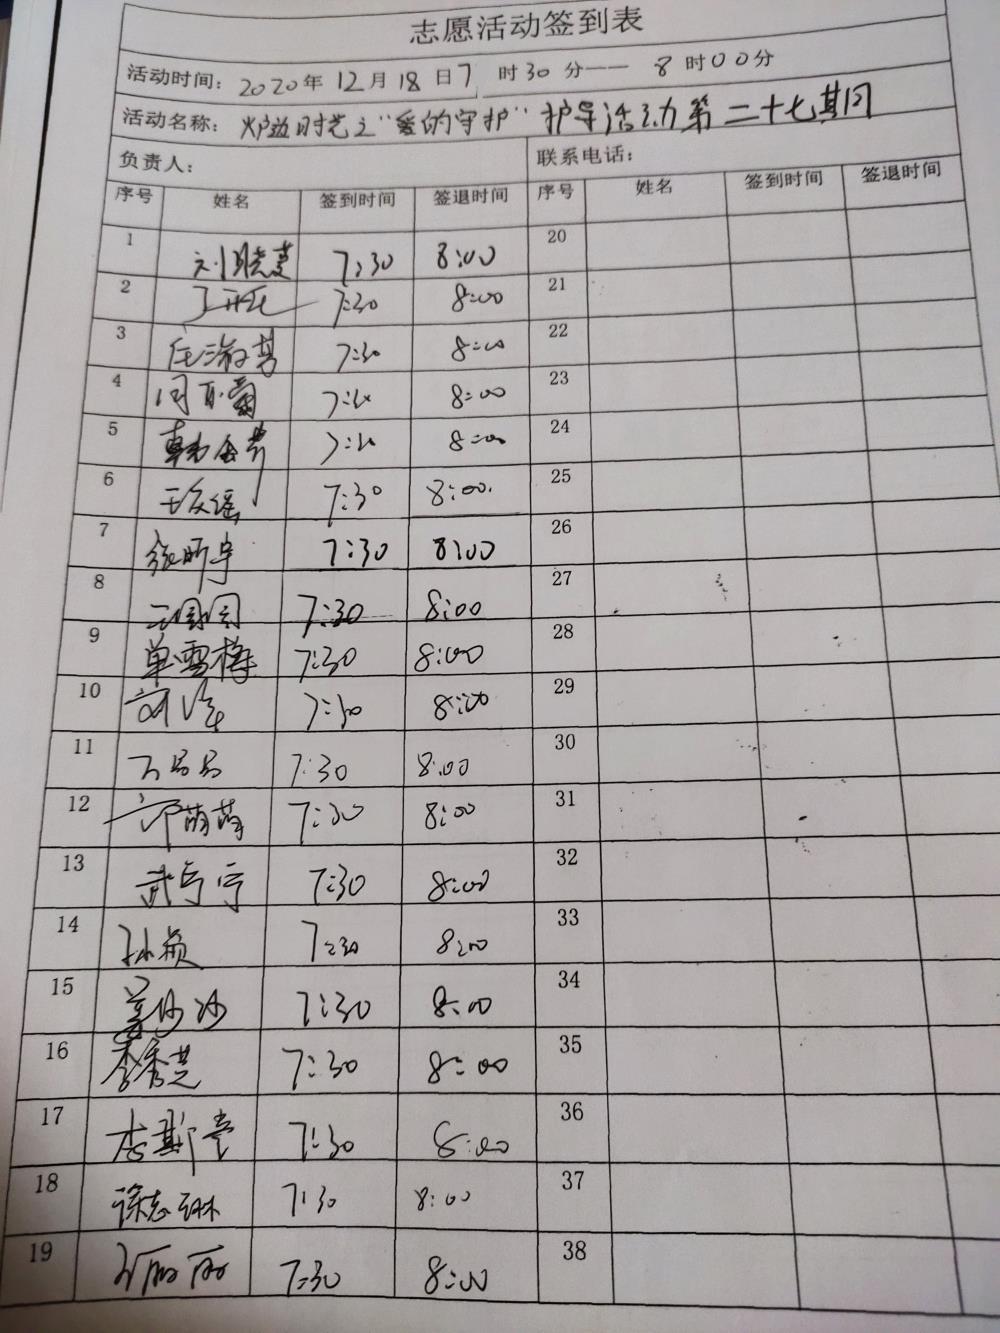 志愿活动签到表
活动时间： 2020年 12月 18日 7 时 30 分—— 8 时 00 分
活动名称： 之"爱的守护" 护导活动第二十七期
负责人： 联系电话：
序号 姓名 签到时间 签退时间 序号 姓名 签到时间 签退时间
1 7:30 8:00 20
2 7:30 8:00 21
3 7:30 8:00 22
4 8:00 23
5 8:00 24
6 7:30 8:00. 25
7 张昕宇 7:30 8:00 26
8 王园园 7:30 8:00 27
9 单雪梅 7:30 8:00 28
10 7:30 8:00 29
11 7:30 8:00 30
12 萌萌 7:30 8:00 31
13 武亨宁 7:30 8:00 32
14 孙颖 7:30 8:00 33
15 姜沙沙 7:30 8:00 34
16 李秀芝 7:30 8:00 35
17 李斯莹 7:30 8:00 36
18 徐志琳 7:30 8:00 37
19 丽丽 7:30 8:00 38